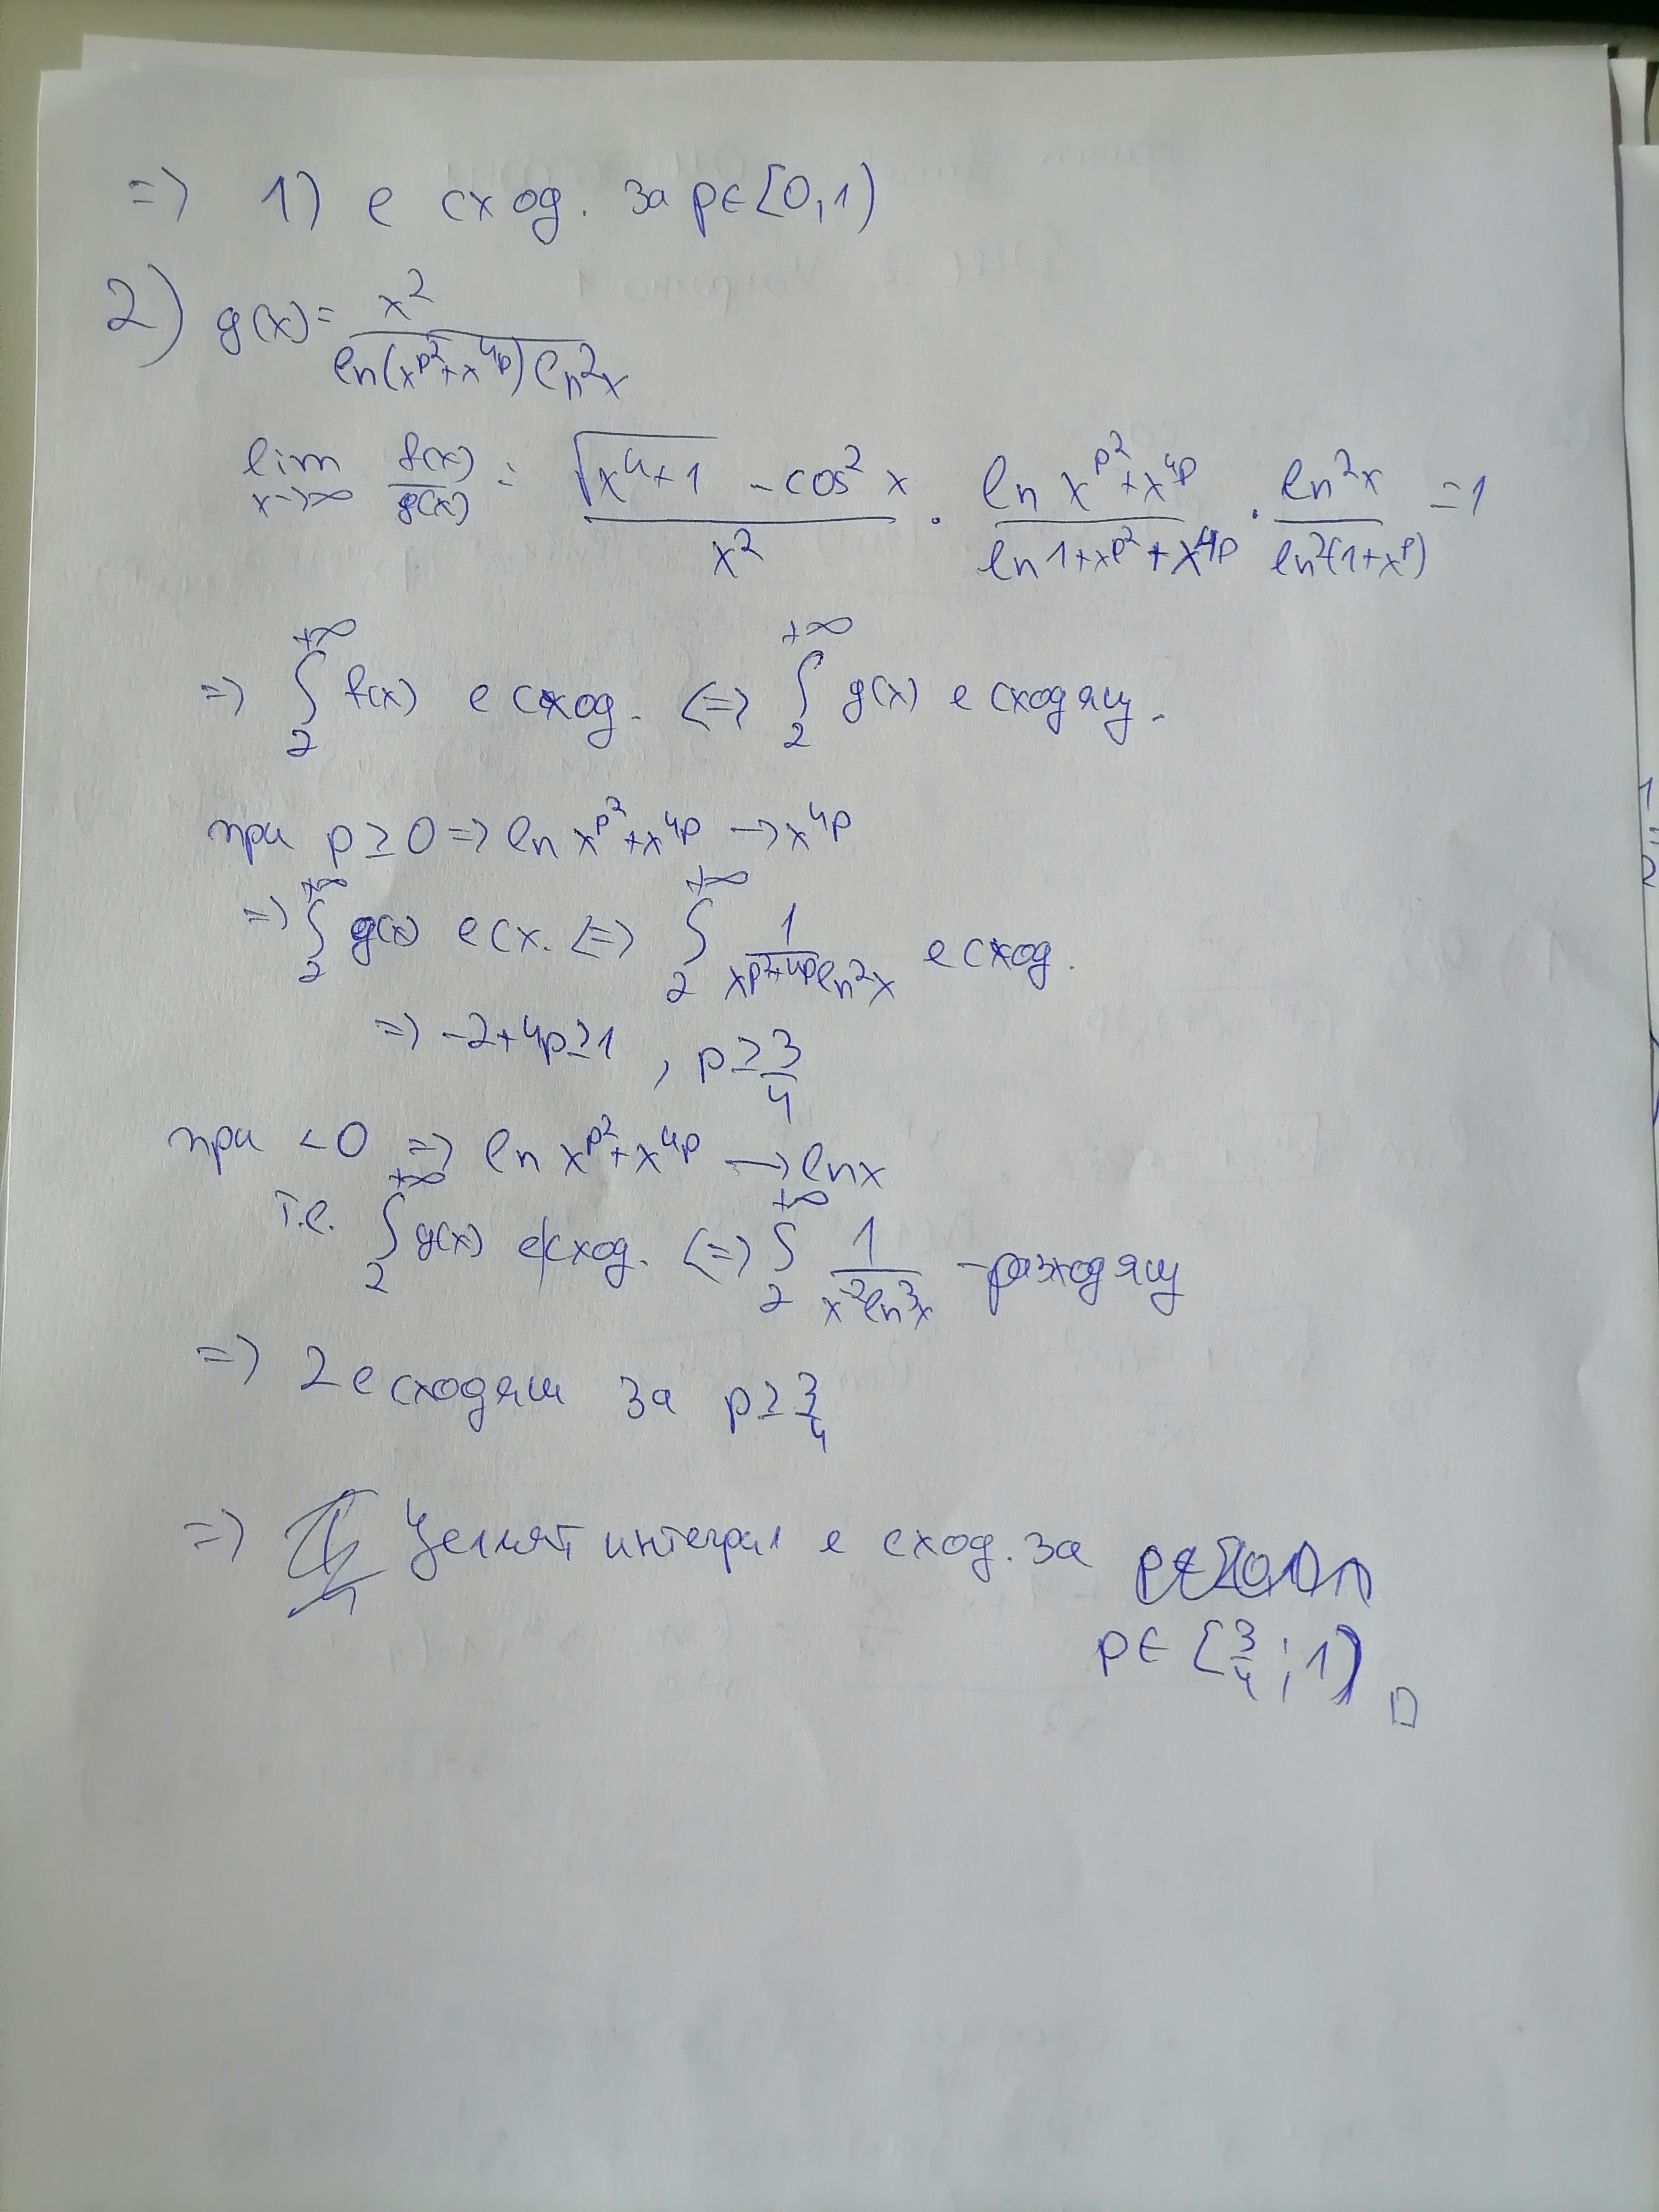 => 1) е сход. за p∈[0,1)
2) g(x) = x² / ln(x^p²+x^4p) ln²x
lim x->∞ f(x)/g(x) = √(x⁴+1) - cos²x / x² · ln x^p²+x^4p / ln 1+x^p²+x^4p · ln²x / ln²(1+x^p) = 1
=> ∫₂^+∞ f(x) е сход. <=> ∫₂^+∞ g(x) е сходящ.
при p≥0 => ln x^p²+x^4p -> x^4p
=> ∫₂^+∞ g(x) е сх. <=> ∫₂^+∞ 1 / x^-2+4p ln²x е сход.
=> -2+4p≥1, p≥3/4
при <0 => ln x^p²+x^4p -> ln x
т.е. ∫₂^+∞ g(x) е сход. <=> ∫₂^+∞ 1 / x^-2 ln³x - разходящ
=> 2 е сходящ за p≥3/4
=> Целият интеграл е сход. за
p∈[3/4;1) □